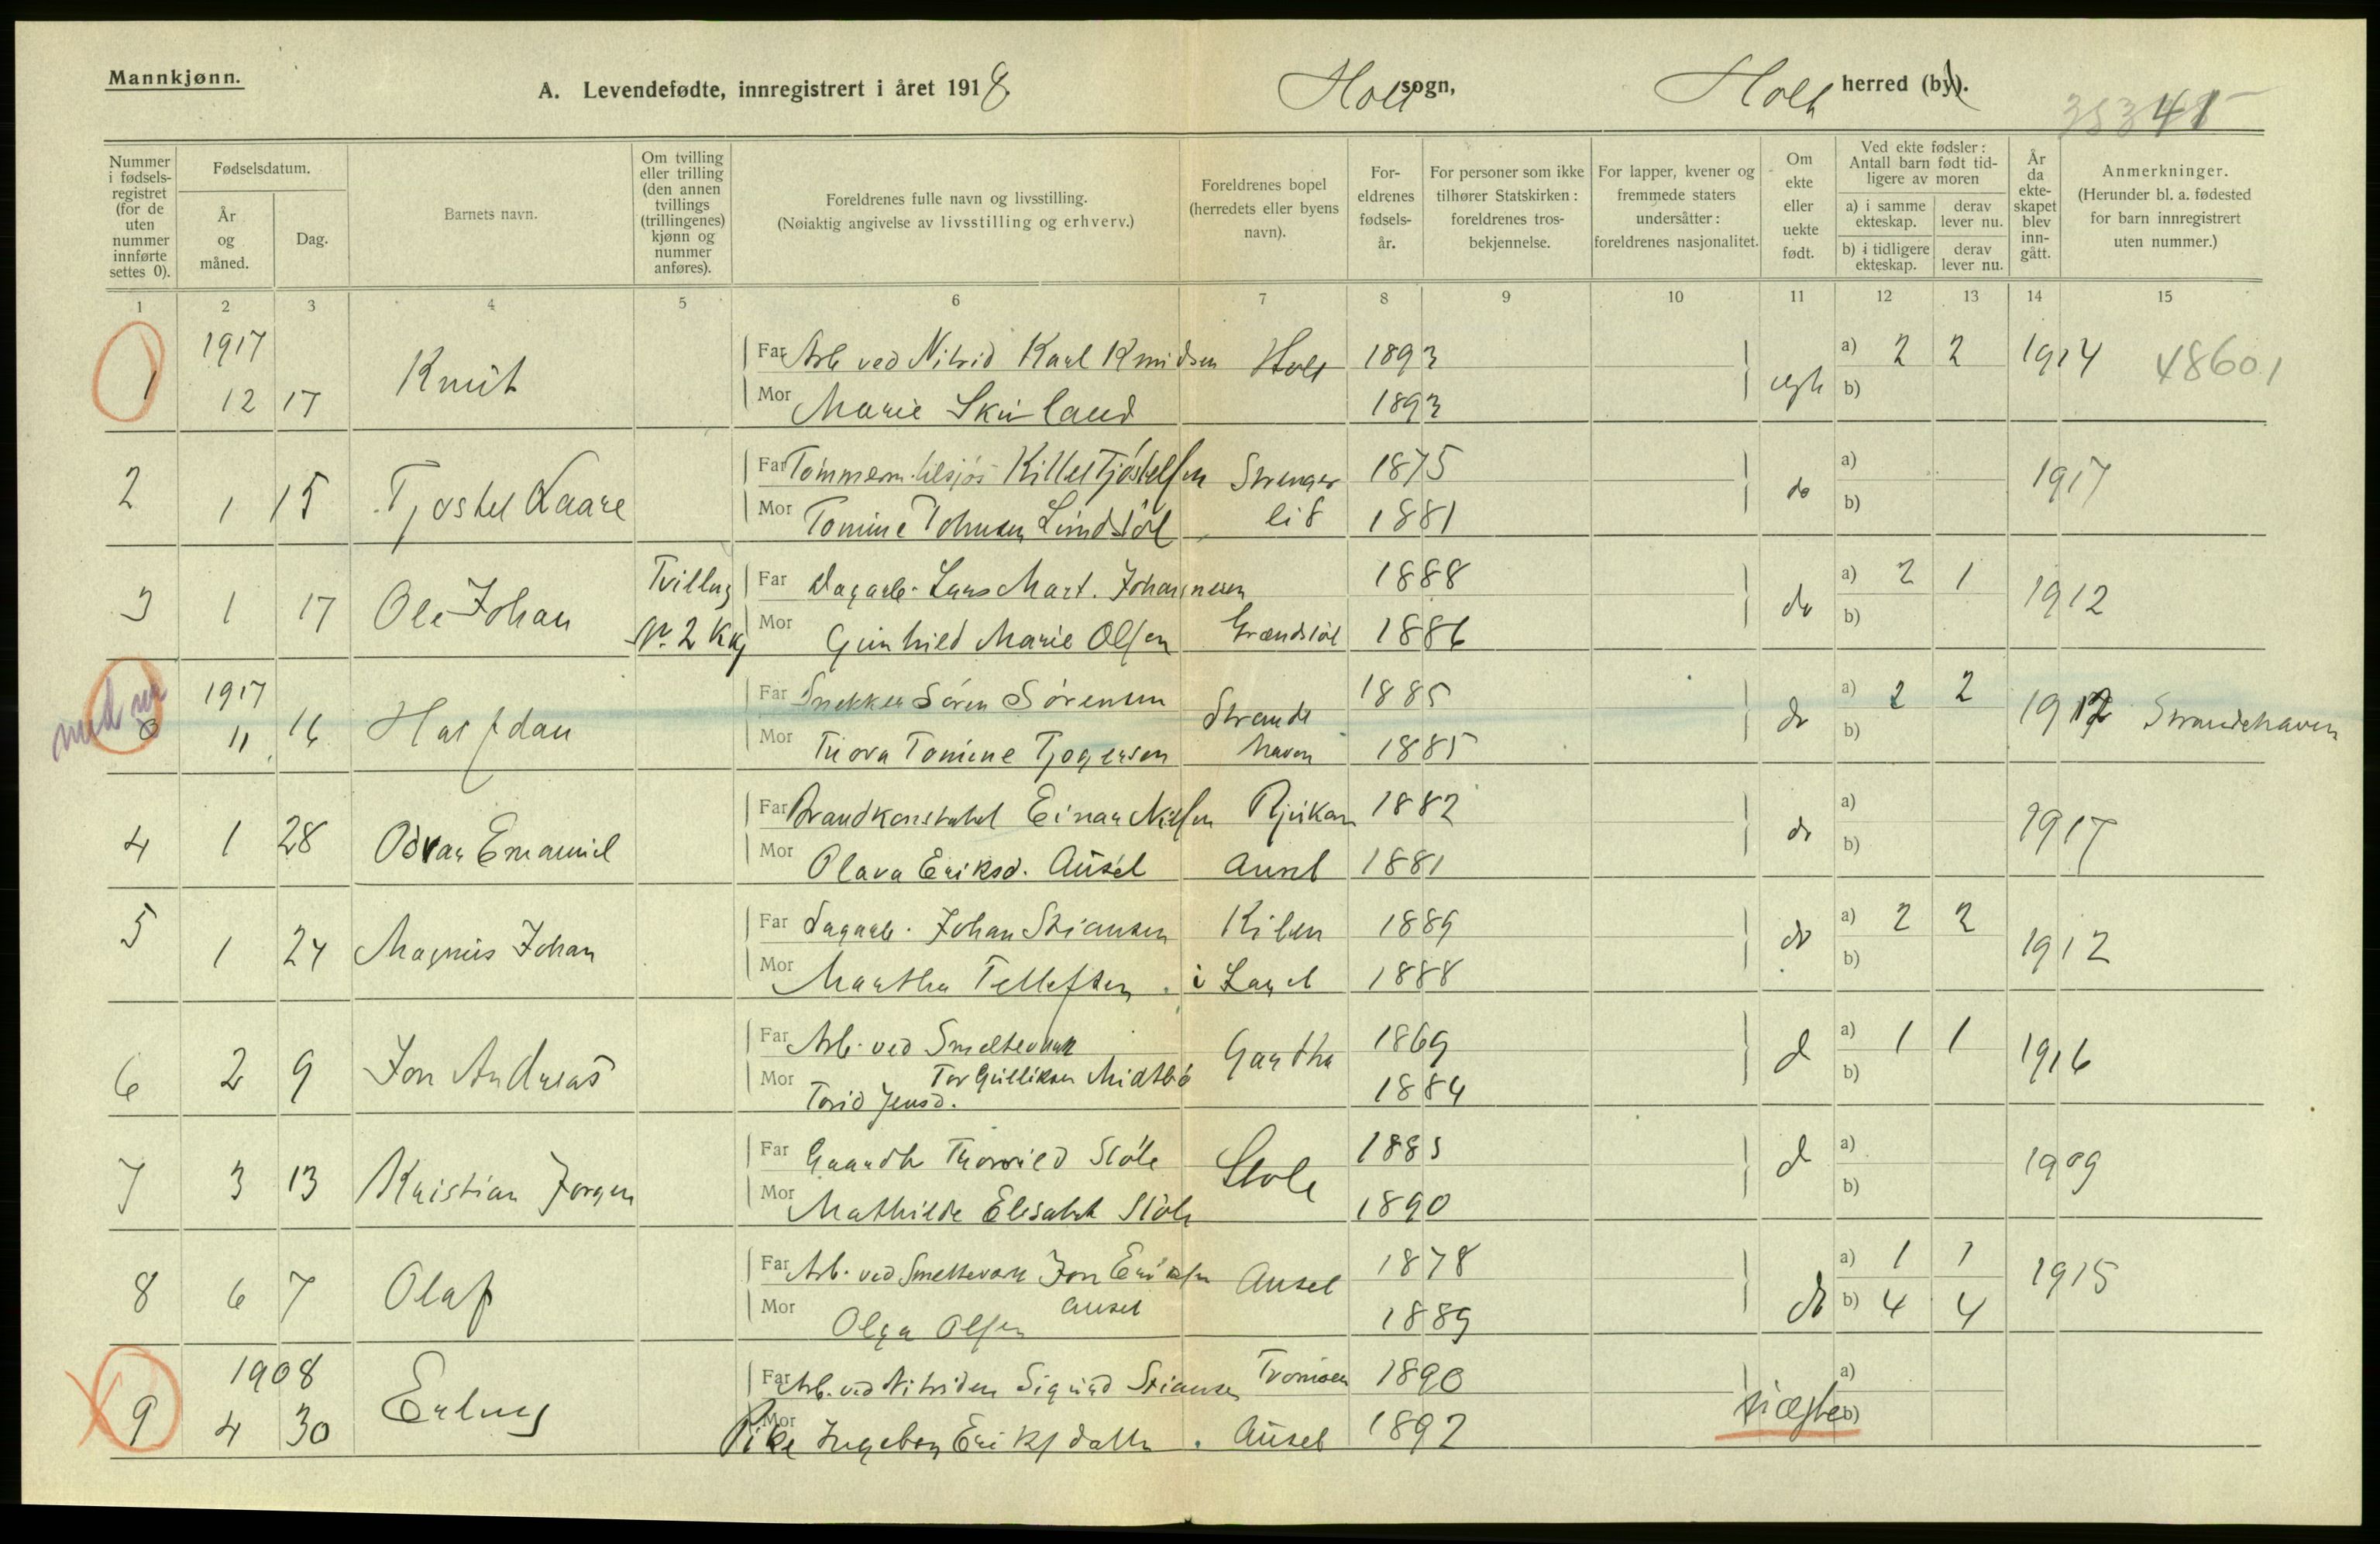 Mannkjønn.
A. Levendefødte, innregistrert i året 1918.
Holt sogn,
Holt herred (by).
Nummer i fødselsregistret (for de uten nummer innførte settes 0).
Fødselsdatum.
År og måned.
Dag.
Barnets navn.
Om tvilling eller trilling (den annen tvillings (trillingenes) kjønn og nummer anføres).
Foreldrenes fulle navn og livsstilling.
(Nøiaktig angivelse av livsstilling og erhverv.)
Foreldrenes bopel (herredets eller byens navn).
Foreldrenes fødselsår.
For personer som ikke tilhører Statskirken: foreldrenes trosbekjennelse.
For lapper, kvener og fremmede staters undersåtter: foreldrenes nasjonalitet.
Om ekte eller uekte født.
Ved ekte fødsler: Antall barn født tidligere av moren
a) i samme ekteskap.
derav lever nu.
b) i tidligere ekteskap.
derav lever nu.
År da ekteskapet blev inngått.
Anmerkninger.
(Herunder bl. a. fødested for barn innregistrert uten nummer.)
1 2 3 4 5 6 7 8 9 10 11 12 13 14 15
1 1917 12 17 Knut
Far Arb ved Nitrid Karl Knudsen Holt 1893 a) 2 2 1914 48601
Mor Marie 1893 b)
2 1 15 Tjostel Kaare
Far Kittel Tjøstelsen 1875 do a) 1917
Mor Tomine 1881 b)
3 1 17 Ole Johan Tvilling Nr. 2 Kkj
Far Dagarb. Lars Mart. Johannesen 1888 do a) 2 1 1912
Mor Gunhild Marie Olsen 1886 b)
0 1917 11 16 Halfdan
Far Snekker Sören Sörensen Strandehaven 1885 do a) 2 2 1912 Strandehaven
Mor Thora Tomine 1885 b)
4 1 28 Odvar Emanuel
Far Brandkonstabel Einar Nilsen Rjukan 1882 do a) 1917
Mor Olava Eriksd. Ausel Ausel 1881 b)
5 1 24 Magnus Johan
Far Dagarb. Johan Stiansen Kilen 1889 do a) 2 2 1912
Mor Martha Tellefsen i 1888 b)
6 2 9 Jon Andreas
Far Arb. ved Smelteverk 1869 d a) 1 1 1916
Tor Gulliksen
Mor Torid Jensd. 1884 b)
7 3 13 Kristian Jorgen
Far Gaardb Støle Støle 1885 d a) 1909
Mor Mathilde Elisabet Støle 1890 b)
8 6 7 Olaf
Far Arb. ved Smelteverk Jon Eriksen Ausel 1878 do a) 1 1 1915
Ausel
Mor Olga Olsen 1889 b) 4 4
9 1908 4 30 Erling
Far Arb. ved Nitriden Sigurd Stiansen Tromøen 1890 uægte a)
Mor Pike Ingeborg Eriksdatter. Ausel 1892 b)